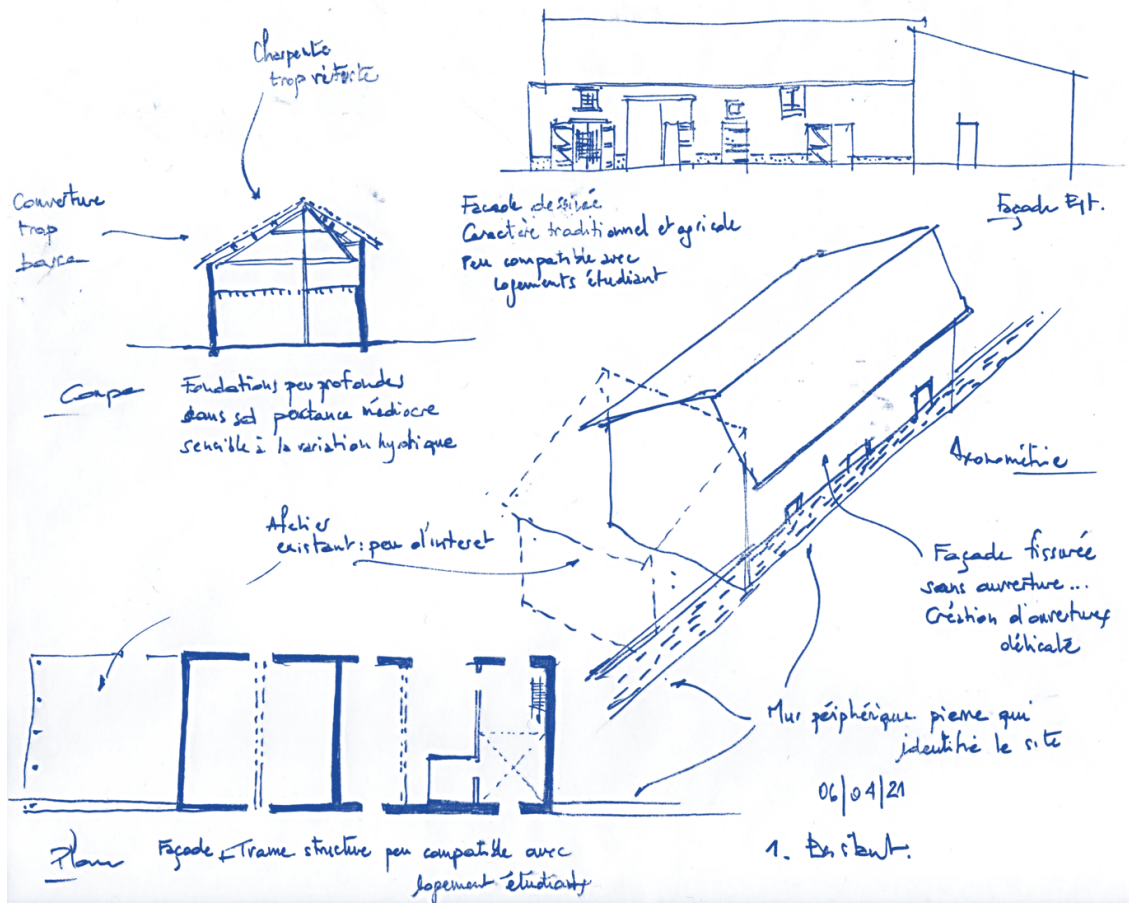 Charpente
trop vétuste
Couverture
trop
basse
Façade dessinée
Caractère traditionnel et agricole
Peu compatible avec
logements étudiant
Façade Est.
Coupe
Fondations peu profondes
dans sol portance médiocre
sensible à la variation hydrique
Axonométrie
Atelier
existant : peu d'interet
Façade fissurée
sans ouverture...
Création d'ouvertures
délicate
Mur périphérique pierre qui
identifie le site
06/04/21
Plan
Façade + Trame structure peu compatible avec
logement étudiants
1. Existant.